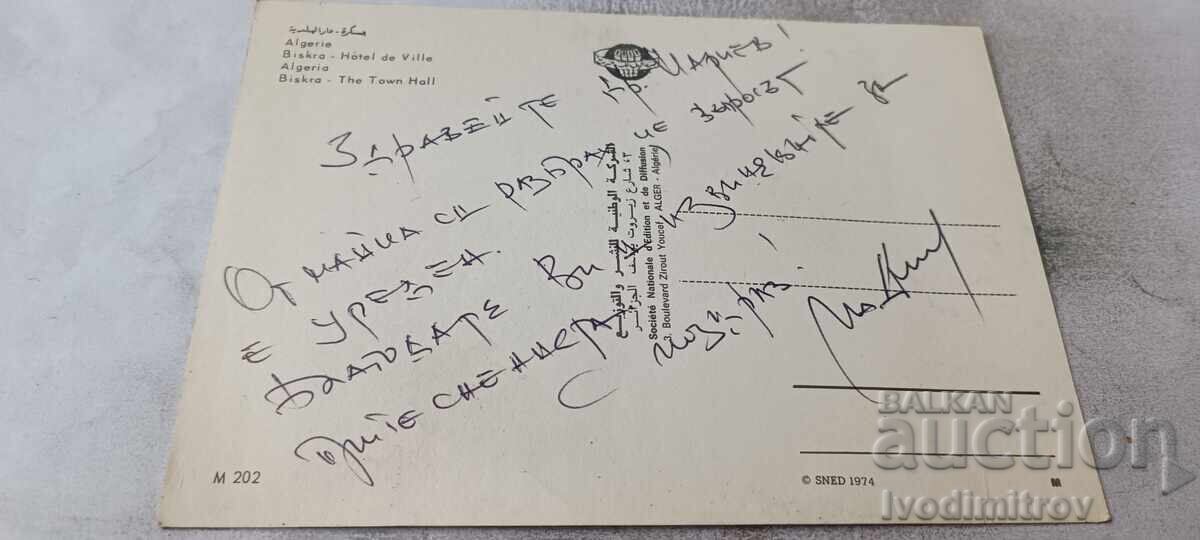 بسكرة - دار البلدية
Algerie
Biskra - Hôtel de Ville
Algeria
Biskra - The Town Hall
Здравейте др.
От майка си разбра че въпросът
е уреден.
Благодаря Ви за
С поздрав!
الشركة الوطنية للنشر والتوزيع
٣، شارع زيروت يوسف الجزائر
Société Nationale d'Edition et de Diffusion
3, Boulevard Zirout Youcef, ALGER - Algérie
M 202
© SNED 1974
M
BALKAN
auction
Ivodimitrov